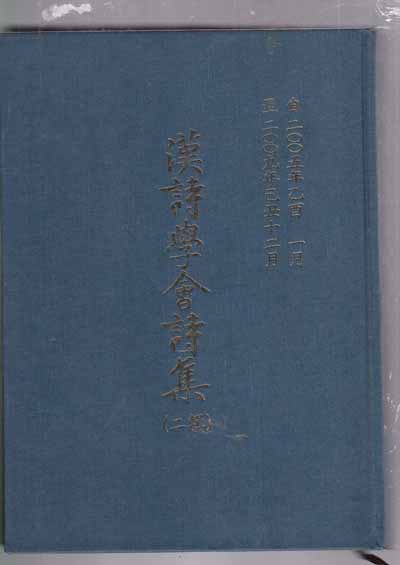 自 二〇〇五年乙酉 一月
至 二〇〇九年己丑十二月
漢詩學會詩集